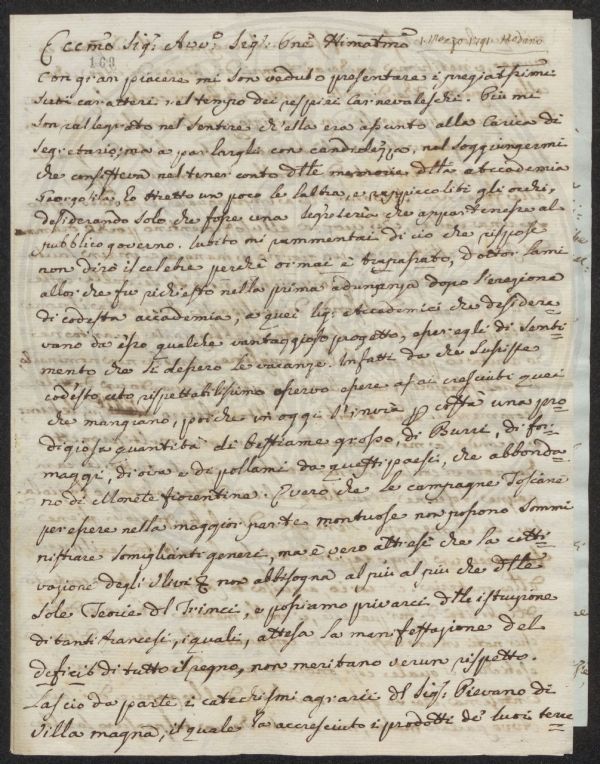 Eccmo Sigr: Avvo: Sigr: Pne Stimatmo 1. Marzo 1791. Modano
169
Con gran piacere mi son veduto presentare i pregiatissimi
suoi caratteri nel tempo dei respiri Carnevaleschi. Più mi
son rallegrato nel sentire ch'ella era assunto alla Carica di
Segretario; ma a parlargli con candidezza, nel soggiungermi
che consisteva nel tener conto dlle memorie dlla Accademia
Georgofila, ho stretto un poco le labbra, e rappiccoliti gli occhi,
desiderando solo che fosse una segreteria che appartenesse al
pubblico governo. Subito mi rammentai di ciò che rispose
non dirò il celebre perchè ormai è trapassato, Dottor Lami
allor che fu richiesto nella prima adunanza dopo l'erezione
di codesta accademia, a quei Sigri Accademici che desidera-
vano da esso qualche vantaggioso progetto, esser egli di senti-
mento che si dessero le vacanze. Infatti da che sussiste
codesto ceto rispettabilissimo osservo essere assai cresciuti quei
che mangiano, poichè in oggi s'invia p costà una pro-
digiosa quantità di bestiame grosso, di Burri, di for-
maggi, di ova e di pollami da questi paesi, che abbonda-
no di Monete fiorentine. È vero che le campagne Toscane
per essere nella maggior parte montuose non possono sommi-
nistrare somiglianti generi, ma è vero altresì che la colti-
vazione degli Ulivi non abbisogna al più al più che dlle
sole Teorie dl Trinci, e possiamo privarci dlle istruzione
di tanti francesi, i quali, attesa la manifestazione del
deficit di tutto il regno, non meritano verun rispetto.
Lascio da parte i catechismi agrarii dl Sigr: Pievano di
Villa magna, il quale ha accresciuto i prodotti de' suoi terre